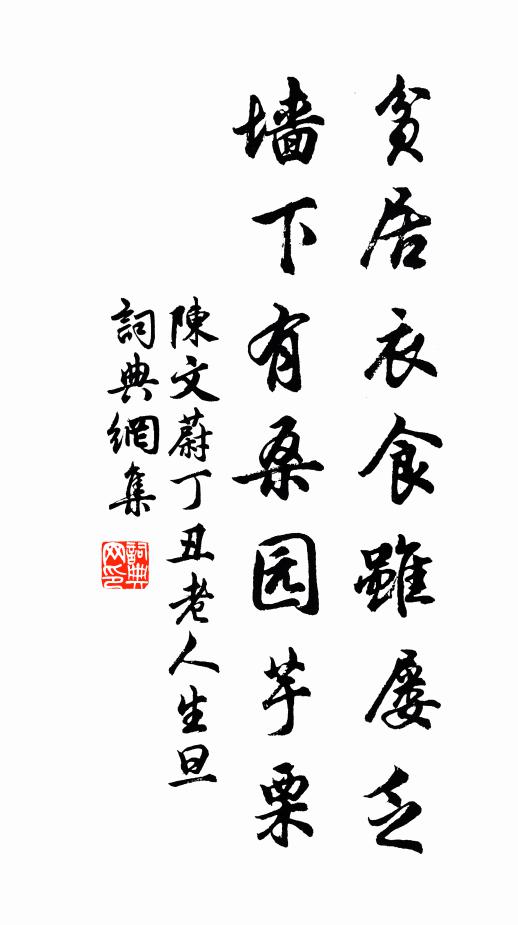 贫居衣食雖屡乏
墙下有桑园芋栗
陳文蔚丁丑老人生旦
詞典網集
詞典
网印